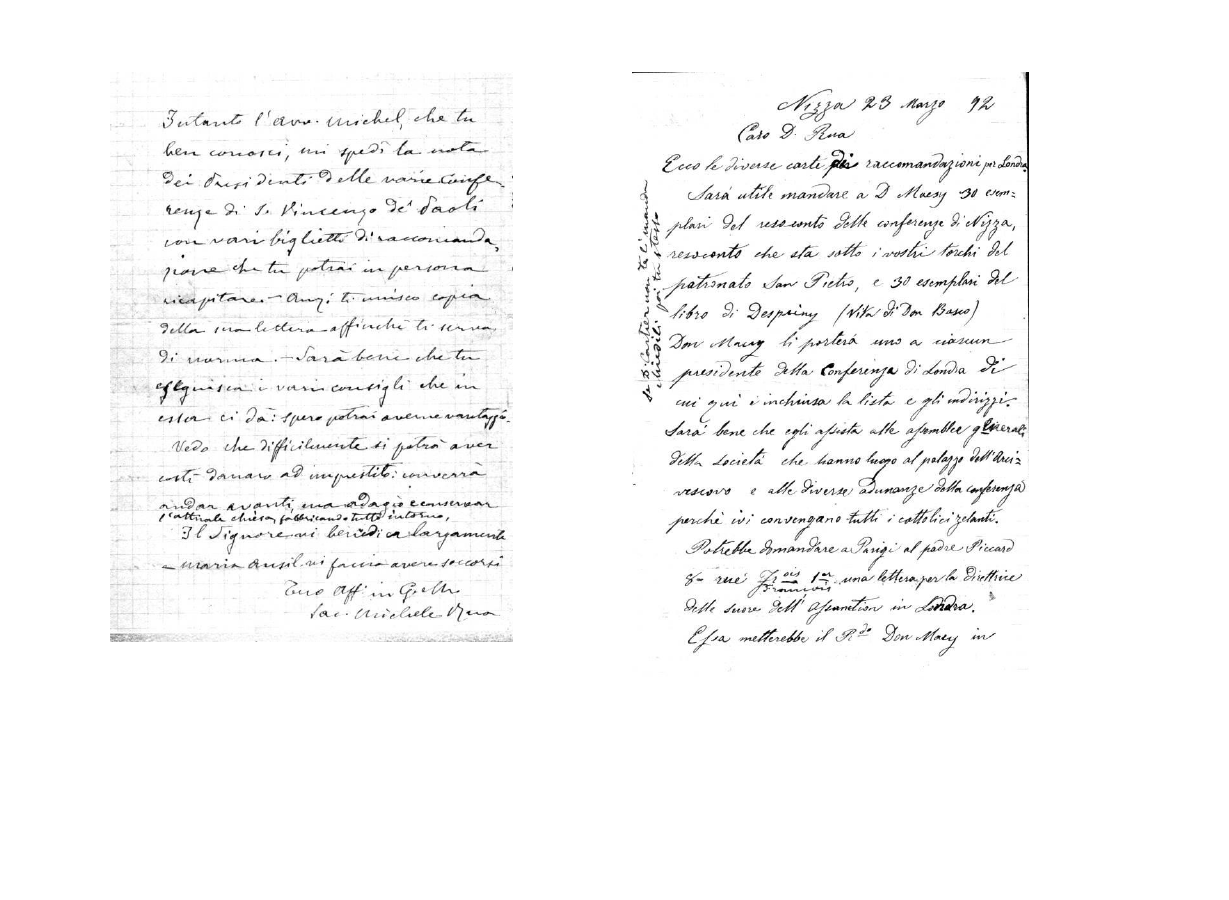 Intanto l'avv. Michel, che tu
ben conosci, mi spedì la nota
dei Presidenti delle varie Confe-
renze di S. Vincenzo de' Paoli
con vari biglietti di raccomanda-
zione che tu potrai in persona
ricapitare. - Anzi ti unisco copia
della sua lettera affinché ti serva
di norma. - Sarà bene che tu
eseguisca i varii consigli che in
essa ci dà: spero potrai averne vantaggio.
Vedo che difficilmente si potrà aver
costì danaro ad imprestito: converrà
andar avanti, ma adagio e conservar
l'attuale chiesa, fabbricando tutto intorno,
Il Signore vi benedica largamente
- Maria Ausil. vi faccia avere soccorsi
Tuo Aff in G. e M.
Sac. Michele Rua
Nizza 23 Marzo 92
Caro D. Rua
Ecco le diverse carte di raccomandazioni per Londra
Sarà utile mandare a D Macey 30 esem=
plari del resoconto delle conferenze di Nizza,
resoconto che sta sotto i vostri torchi del
patronato San Pietro, e 30 esemplari del
libro di Despiney (Vita di Don Bosco)
Don Macey li porterà uno a ciascun
presidente della Conferenza di Londra di
cui qui è inchiusa la lista e gli indirizzi.
Sarà bene che egli assista alle assemblee generali
della società che hanno luogo al palazzo dell'Arci=
vescovo e alle diverse adunanze della conferenza
perchè ivi convengano tutti i cattolici zelanti.
Potrebbe domandare a Parigi al padre Piccard
8- rue Frois 1er una lettera per la direttrice
François
delle suore dell' Assomption in Londra.
Essa metterebbe il Rdo Don Macey in
se D. Cartier non te li manda
chiedili per tu stesso